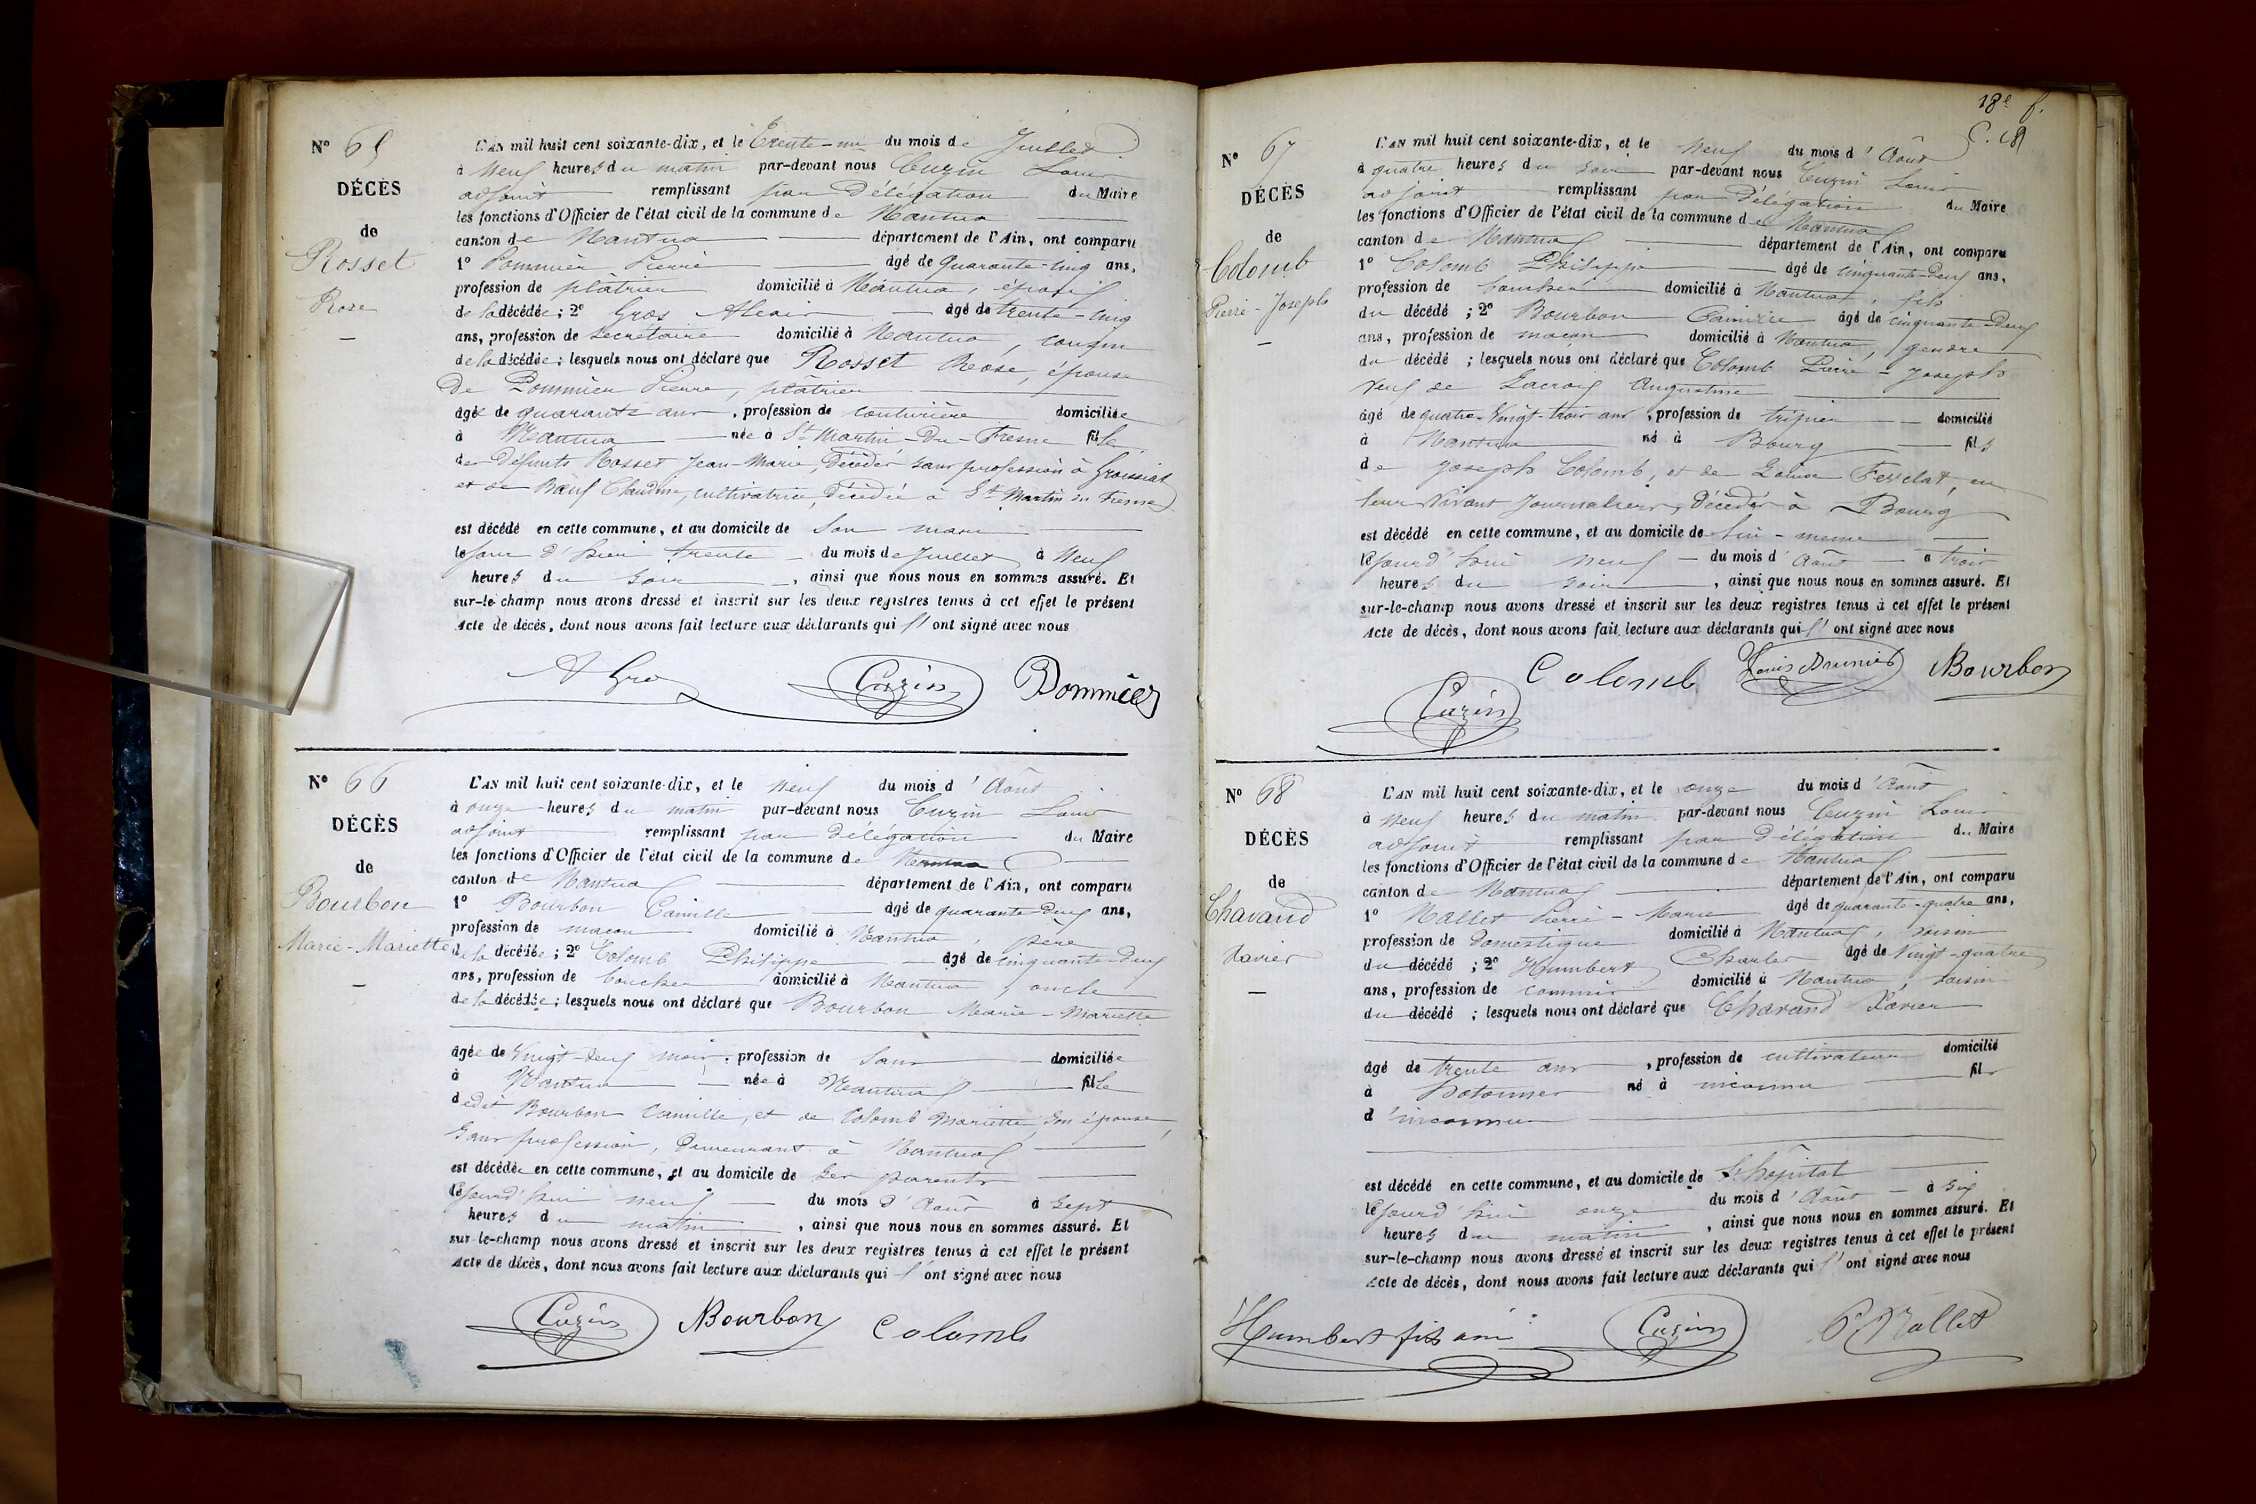 N° 65
DÉCÈS
de
Rosset
Rose
L'AN mil huit cent soixante-dix, et le Trente-un du mois de Juillet
à Neuf heures du matin par-devant nous Cuzin Louis
adjoint remplissant par Délégation du Maire
les fonctions d'Officier de l'état civil de la commune de Nantua
canton de Nantua département de l'Ain, ont comparu
1° Pommier Pierre âgé de quarante-cinq ans,
profession de plâtrier domicilié à Nantua, époux
de la décédée ; 2° Gros Alexis âgé de trente-cinq
ans, profession de secrétaire domicilié à Nantua, cousin
de la décédée ; lesquels nous ont déclaré que Rosset Rose, épouse
De Pommier Pierre, plâtrier
âgée de quarante ans, profession de couturière domiciliée
à Nantua née à St Martin-Du-Fresne fille
des Défunts Rosset Jean-Marie, Décédé sans profession à Groissiat
et de Bœuf Claudine, cultivatrice, Décédée à St Martin du Fresne
est décédé en cette commune, et au domicile de son mari
le jour d'hier trente du mois de Juillet à Neuf
heures du soir, ainsi que nous nous en sommes assuré. Et
sur-le-champ nous avons dressé et inscrit sur les deux registres tenus à cet effet le présent
Acte de décès, dont nous avons fait lecture aux déclarants qui l'ont signé avec nous
A Gros Cuzin Pommier
N° 66
DÉCÈS
de
Bourbon
Marie-Mariette
L'AN mil huit cent soixante-dix, et le neuf du mois d'Août
à onze heures du matin par-devant nous Cuzin Louis
adjoint remplissant par délégation du Maire
les fonctions d'Officier de l'état civil de la commune de Nantua
canton de Nantua département de l'Ain, ont comparu
1° Bourbon Camille âgé de quarante-deux ans,
profession de maçon domicilié à Nantua, père
de la décédée ; 2° Colomb Philippe âgé de cinquante-deux
ans, profession de boucher domicilié à Nantua, oncle
de la décédée ; lesquels nous ont déclaré que Bourbon Marie-Mariette
âgée de vingt-deux mois, profession de sans domiciliée
à Nantua née à Nantua fille
dedit Bourbon Camille, et de Colomb Mariette, son épouse,
sans profession, demeurant à Nantua
est décédée en cette commune, et au domicile de ses parents
le jourd'hui neuf du mois d'Août à sept
heures du matin, ainsi que nous nous en sommes assuré. Et
sur-le-champ nous avons dressé et inscrit sur les deux registres tenus à cet effet le présent
Acte de décès, dont nous avons fait lecture aux déclarants qui l'ont signé avec nous
Cuzin Bourbon Colomb
18e f.
N° 67
DÉCÈS
de
Colomb
Pierre-Joseph
L'AN mil huit cent soixante-dix, et le neuf du mois d'Août
à quatre heures du soir par-devant nous Cuzin Louis
adjoint remplissant par Délégation du Maire
les fonctions d'Officier de l'état civil de la commune de Nantua
canton de Nantua département de l'Ain, ont comparu
1° Colomb Philippe âgé de cinquante-deux ans,
profession de boucher domicilié à Nantua, fils
du décédé ; 2° Bourbon Camille âgé de cinquante-deux
ans, profession de maçon domicilié à Nantua, gendre
du décédé ; lesquels nous ont déclaré que Colomb Pierre-Joseph
veuf de Lacroix Augustine
âgé de quatre-vingt-trois ans, profession de tripier domicilié
à Nantua né à Bourg fils
de Joseph Colomb, et de Louise Ferrlat, en
leur vivant Journaliers, Décédés à Bourg
est décédé en cette commune, et au domicile de lui-meme
le jourd'hui neuf du mois d'Août à trois
heures du soir, ainsi que nous nous en sommes assuré. Et
sur-le-champ nous avons dressé et inscrit sur les deux registres tenus à cet effet le présent
Acte de décès, dont nous avons fait lecture aux déclarants qui l'ont signé avec nous
Cuzin Colomb Louis Brunier Bourbon
N° 68
DÉCÈS
de
Chavand
Xavier
L'AN mil huit cent soixante-dix, et le onze du mois d'Août
à neuf heures du matin par-devant nous Cuzin Louis
adjoint remplissant par Délégation du Maire
les fonctions d'Officier de l'état civil de la commune de Nantua
canton de Nantua département de l'Ain, ont comparu
1° Mallet Pierre-Marie âgé de quarante-quatre ans,
profession de Domestique domicilié à Nantua, voisin
du décédé ; 2° Humbert Charles âgé de vingt-quatre
ans, profession de commis domicilié à Nantua, voisin
du décédé ; lesquels nous ont déclaré que Chavand Xavier
âgé de trente ans, profession de cultivateur domicilié
à Hotonnes né à inconnu fils
d'inconnu
est décédé en cette commune, et au domicile de L'hôpital
le jourd'hui onze du mois d'Août à six
heures du matin, ainsi que nous nous en sommes assuré. Et
sur-le-champ nous avons dressé et inscrit sur les deux registres tenus à cet effet le présent
Acte de décès, dont nous avons fait lecture aux déclarants qui l'ont signé avec nous
Humbert fils ainé Cuzin P Mallet